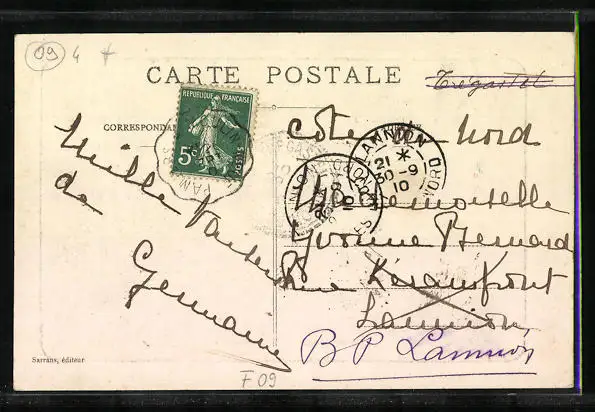 09 4
CARTE POSTALE
Trégastel
CORRESPONDAN
REPUBLIQUE FRANÇAISE
5c
POSTES
LANNION
21 *
30 - 9
10
NORD
Côte du Nord
Mademoiselle
Yvonne Bernard
Rue Kérampont
Lannion
BP Lannion
Mille
de
Germaine
Sarrans, éditeur
F 09